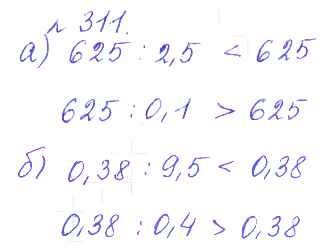 № 311.
а) 625 : 2,5 < 625
625 : 0,1 > 625
б) 0,38 : 9,5 < 0,38
0,38 : 0,4 > 0,38